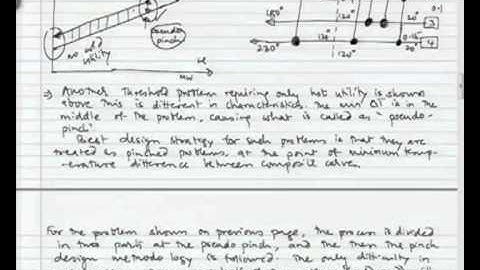 pseudo
pinch
no cold
utility
H
MW
180°
230°
120°
120°
120°
120°
20°
20°
0.1
0.15
3
4
⇒ Another Threshold problem requiring only hot utility is shown
above this is different in characteristics. The min ΔT is in the
middle of the problem, causing what is called as "pseudo-
pinch"
Best design strategy for such problems is that they are
treated as pinched problems, at the point of minimum temp-
erature difference between composite curve.
For the problem shown on previous page, the process is divided
in two parts at the pseudo pinch, and the then the pinch
design methodology is followed. The only difficulty in